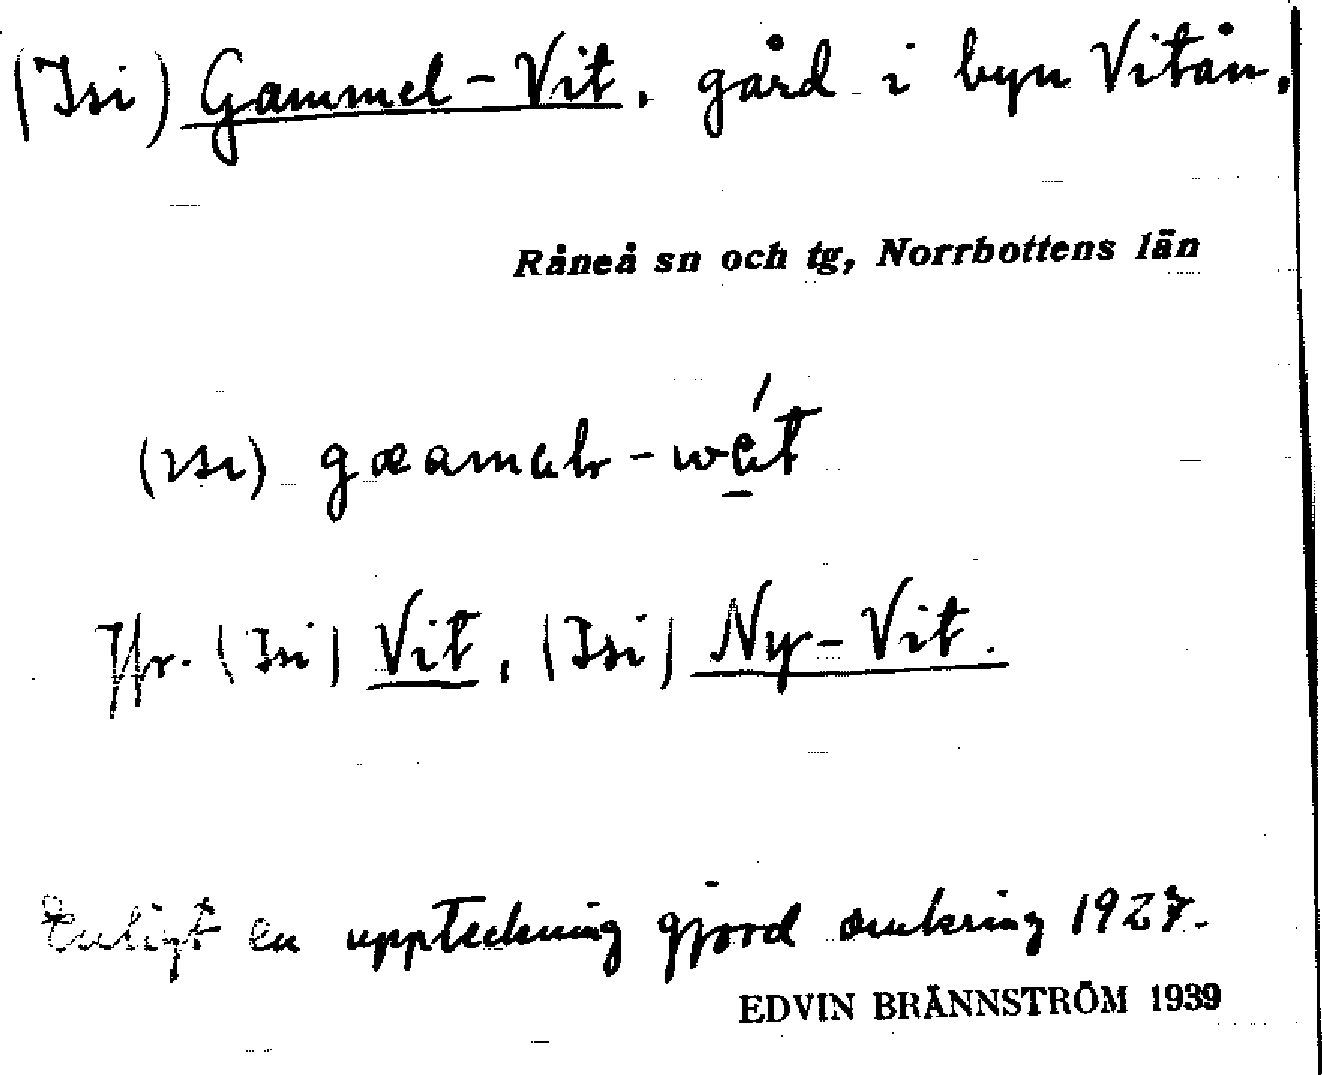 (Isi) Gammel-Vit, gård i byn Vitån,
Råneå sn och tg, Norrbottens län
(ısı) gæamalr-wét
Jfr. (Isi) Vit, (Isi) Ny-Vit.
Enligt en uppteckning gjord omkring 1927.
EDVIN BRÄNNSTRÖM 1939